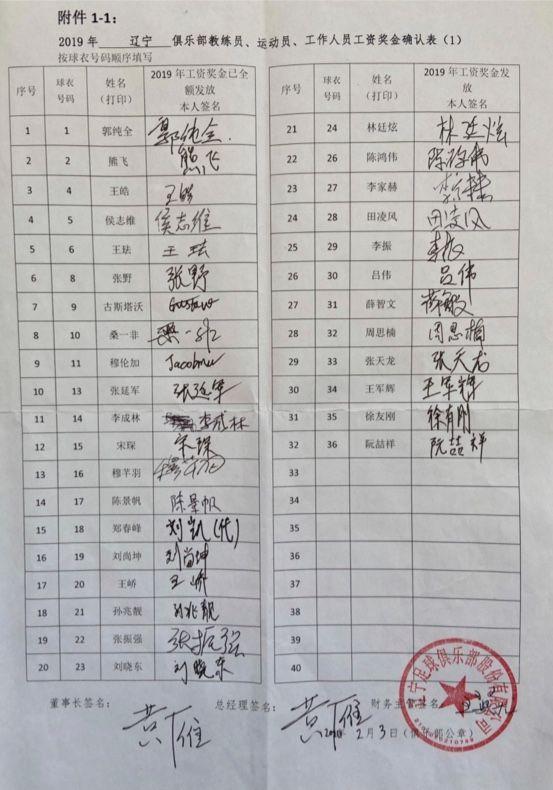 附件 1-1：
2019 年 辽宁 俱乐部教练员、运动员、工作人员工资奖金确认表（1）
按球衣号码顺序填写
序号 球衣号码 姓名（打印） 2019 年工资奖金已全额发放 本人签名
1 1 郭纯全 郭纯全
2 2 熊飞 熊飞
3 4 王皓 王皓
4 5 侯志维 侯志维
5 6 王珐 王珐
6 8 张野 张野
7 9 古斯塔沃 Gustavo
8 10 桑一非 桑一非
9 11 穆伦加
10 13 张延军 张延军
11 14 李成林 李成林
12 15 宋琛 宋琛
13 16 穆芊羽
14 17 陈景帆 陈景帆
15 18 郑春峰 刘凯（代）
16 19 刘尚坤 刘尚坤
17 20 王峤 王峤
18 21 孙兆靓 孙兆靓
19 22 张振强 张振强
20 23 刘晓东 刘晓东
序号 球衣号码 姓名（打印） 2019 年工资奖金发放 本人签名
21 24 林廷炫 林廷炫
22 26 陈鸿伟
23 27 李家赫
24 28 田凌风 田凌风
25 29 李振 李振
26 30 吕伟 吕伟
27 31 薛智文
28 32 周思楠 周思楠
29 33 张天龙 张天龙
30 34 王军辉 王军辉
31 35 徐友刚 徐有刚
32 36 阮喆祥 阮喆祥
33
34
35
36
37
38
39
40
董事长签名： 总经理签名： 财务主管签名
黄雁 黄雁
2月3日（俱乐部公章）
宁足球俱乐部股份有限公司